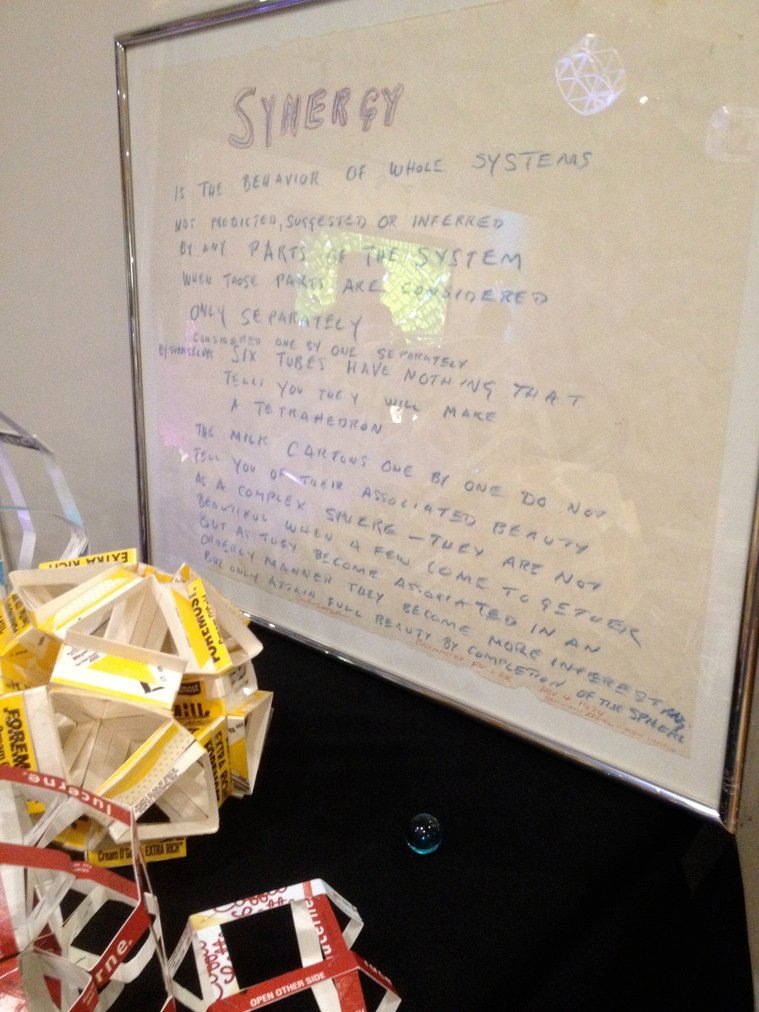 SYNERGY
IS THE BEHAVIOR OF WHOLE SYSTEMS
NOT PREDICTED, SUGGESTED OR INFERRED
BY ANY PARTS OF THE SYSTEM
WHEN THOSE PARTS ARE CONSIDERED
ONLY SEPARATELY
CONSIDERED ONE BY ONE SEPARATELY
BY THEMSELVES SIX TUBES HAVE NOTHING THAT
TELLS YOU THEY WILL MAKE
A TETRAHEDRON
THE MILK CARTONS ONE BY ONE DO NOT
TELL YOU OF THEIR ASSOCIATED BEAUTY
AS A COMPLEX SPHERE - THEY ARE NOT
BEAUTIFUL WHEN A FEW COME TOGETHER
BUT AS THEY BECOME ASSOCIATED IN AN
ORDERLY MANNER THEY BECOME MORE INTERESTING
BUT ONLY ATTAIN FULL BEAUTY BY COMPLETION OF THE SPHERE
EXTRA RICH
FOREMOST
EXTRA RICH
Cream O' "EXTRA RICH"
lucerne.
lucerne
OPEN OTHER SIDE